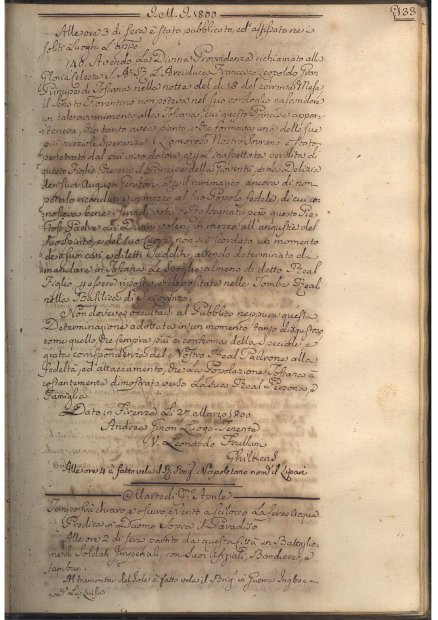 I.M.I. 1800
133
Alle ore 3 di sera è stato pubblicato, ed affissato nei
soliti Luoghi L'appo
146. Avendo La Divina Provvidenza richiamato alla
Gloria Celeste S.A.R. L'Arciduca Francesco Leopoldo Gran
Principe di Toscana nella notte del dì 18 del corrente Mese
il Senato Fiorentino non poteva nel suo cordoglio nascondere
un tale avvenimento alla Toscana, cui questo Principe appar
teneva, che tanto avea pianto, e che formava una delle sue
più preziose Speranze. L'amoroso Nostro Sovrano è stato
penetrato dal più vivo dolore, e la inaspettata perdita di
questo Figlio che era il Principe della Gioventù, e la Delizia
dei suoi Augusti Genitori, e più rammarico ancora di non
poterlo ricondurre in mezzo al suo Popolo fedele, di cui co
nosceva bene i fervidi voti. Ma bagnato però questo Re
Padre di Divini voleri in mezzo all'angustie del
suo Spirito, e del suo Cuore, non s'è scordato un momento
de suoi cari, e diletti Sudditi, avendo determinato di
mandare in Toscana Le Spoglie almeno di detto Real
Figlio, per essere riposte, e depositate nelle Tombe Reali
nella Basilica di S. Lorenzo.
Non doveva occultarsi al Pubblico neppure questa
Determinazione adottata in un momento tanto disgustoso
come quello, che sempre più ci conferma della Speciale, e
grata corrispondenza del Nostro Real Padrone alla
Fedeltà, ed attaccamento, che La Popolazione Toscana à
costantemente dimostrato verso La sua Real Persona, e
Famiglia.
Dato in Firenze Li 27. Marzo 1800.
Andrea Ginori Luogo-Tenente
V. Leonardo Frullani
Ghilkens
Alle ore 4 à fatto vela il Brig. Napoletano nom.o il Lipari
Martedì P.mo Aprile
Tempo frà chiaro, e oscuro, e vento a scilocco La sera Acqua
Predica in Duomo Sopra il Paradiso
Alle ore 2 di sera partito da questa Città un Battaglio
ne di Soldati Imperiali, con suoi Ufiziali, Bandiere, e
tamburi.
Al tramontar del Sole à fatto vela il Brig. in Guerra Inglese
nom.o